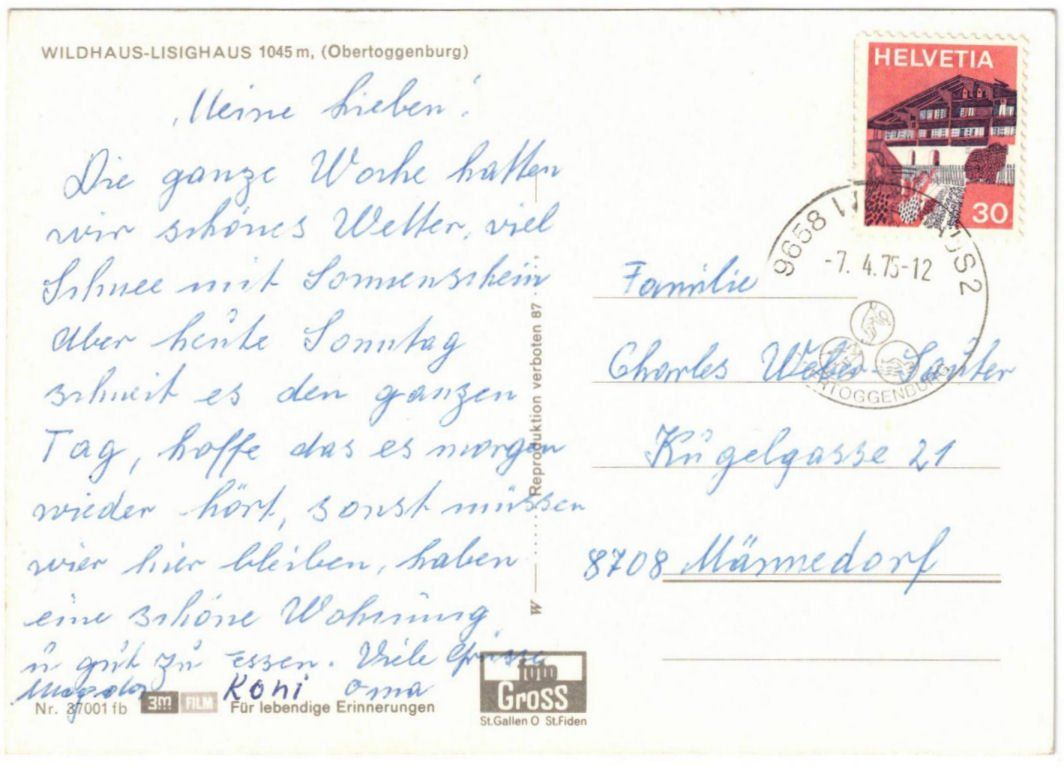 WILDHAUS-LISIGHAUS 1045 m, (Obertoggenburg)
Meine Lieben!
Die ganze Woche hatten
wir schönes Wetter, viel
Schnee mit Sonnenschein
Aber heute Sonntag
schneit es den ganzen
Tag, hoffe das es morgen
wieder hört, sonst müssen
wier hier bleiben, haben
eine schöne Wohnung
u gut zu Essen. Viele Grüsse
Magda Köhi Oma
Nr. 37001 fb 3m FILM Für lebendige Erinnerungen
W Reproduktion verboten 87
foto
Gross
St.Gallen O St.Fiden
HELVETIA
30
9658 2
-7. 4.75-12
OBERTOGGENBURG
Familie
Charles Weber-Sauter
Kügelgasse 21
8708 Männedorf